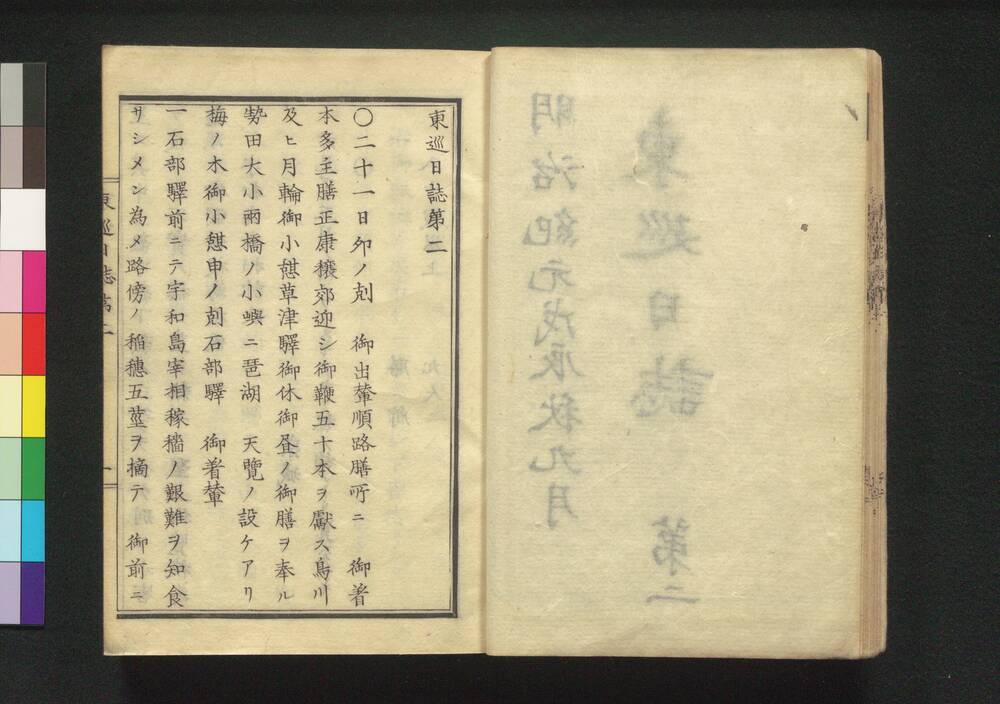 東巡日誌
第二
明治紀元戊辰秋九月
東巡日誌第二
〇二十一日卯ノ剋　御出輦順路膳所ニ　御着
本多主膳正康穣郊迎シ御鞭五十本ヲ獻ス鳥川
及ヒ月輪御小憇草津驛御休御昼ノ御膳ヲ奉ル
勢田大小兩橋ノ小嶼ニ琶湖　天覽ノ設ケアリ
梅ノ木御小憇申ノ剋石部驛　御着輦
一石部驛前ニテ宇和島宰相稼穡ノ艱難ヲ知食
サシメン為メ路傍ノ稲穗五莖ヲ摘テ　御前ニ
東巡日誌第二
一